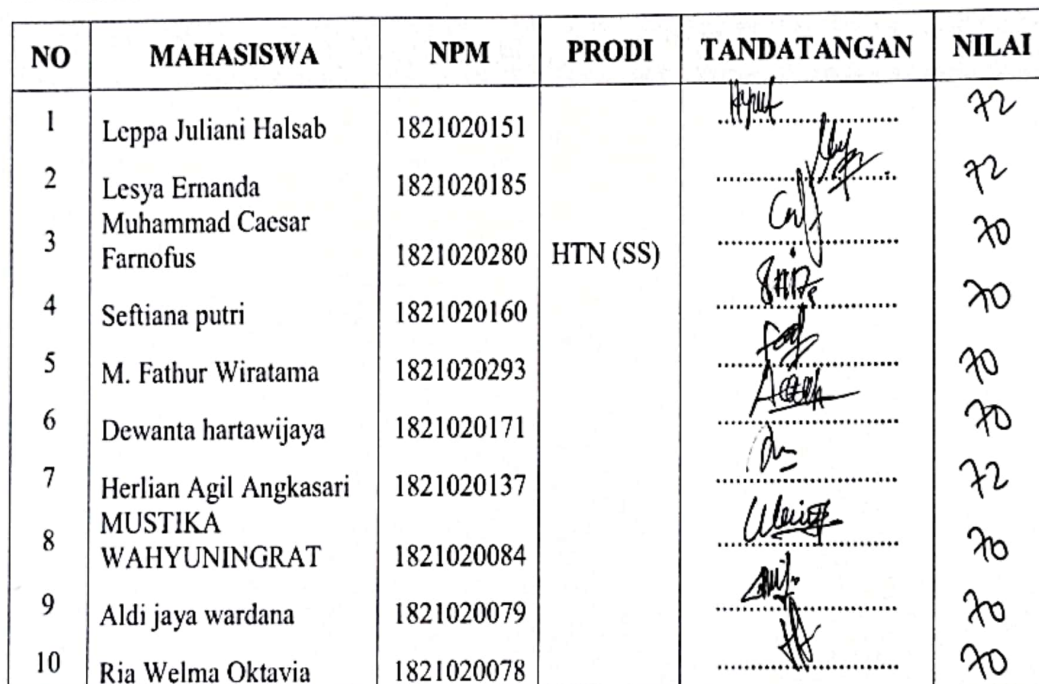 NO MAHASISWA NPM PRODI TANDATANGAN NILAI
1 Leppa Juliani Halsab 1821020151 72
2 Lesya Ernanda 1821020185 72
Muhammad Caesar
3 Farnofus 1821020280 HTN (SS) 70
4 Seftiana putri 1821020160 70
5 M. Fathur Wiratama 1821020293 70
6 Dewanta hartawijaya 1821020171 70
7 Herlian Agil Angkasari 1821020137 72
MUSTIKA
8 WAHYUNINGRAT 1821020084 70
9 Aldi jaya wardana 1821020079 70
10 Ria Welma Oktavia 1821020078 70